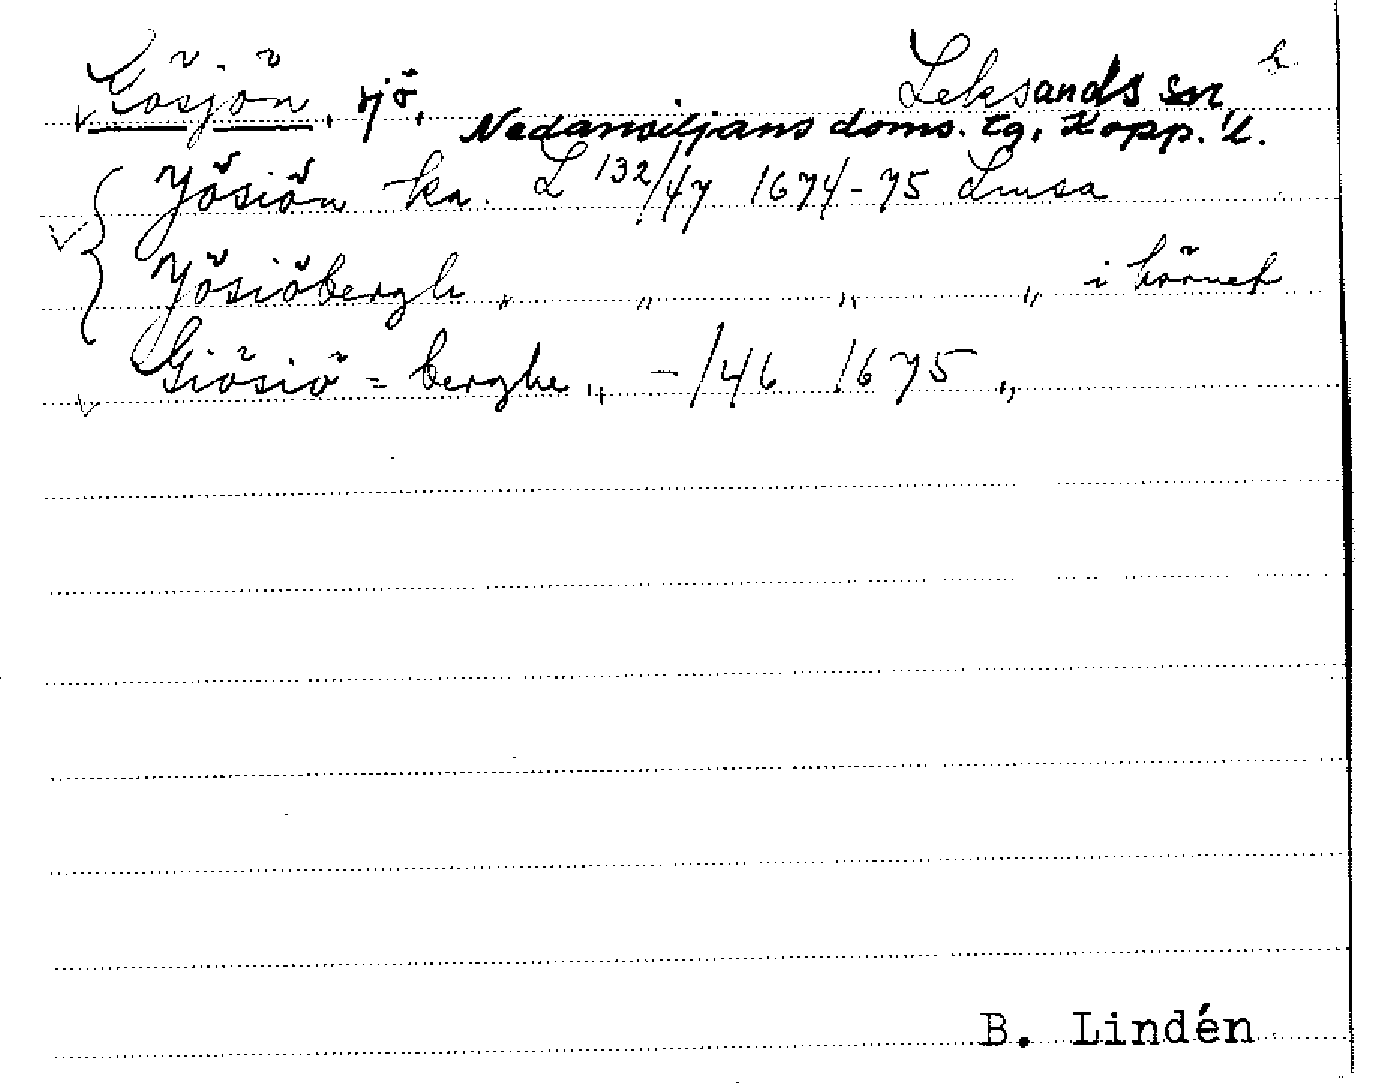 Gösjön, sjö, Leksands sn b
Nedansiljans doms. tg. Kopp. l.
Yösiön ka. L 132/47 1674-75 Limsa
Yösiöbergh " " " " i hörnet
Giösiö = berghe " - /46 1675 "
B. Lindén